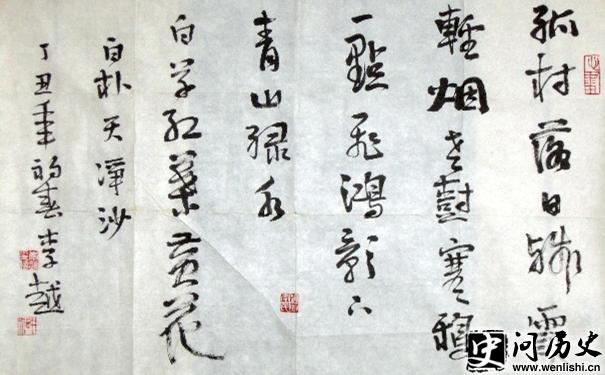 孤村落日残霞
輕烟老樹寒鴉
一點飛鴻影下
青山绿水
白草红葉黄花
白朴天凈沙
丁丑年初春李越
问历史
www.wenlishi.cn